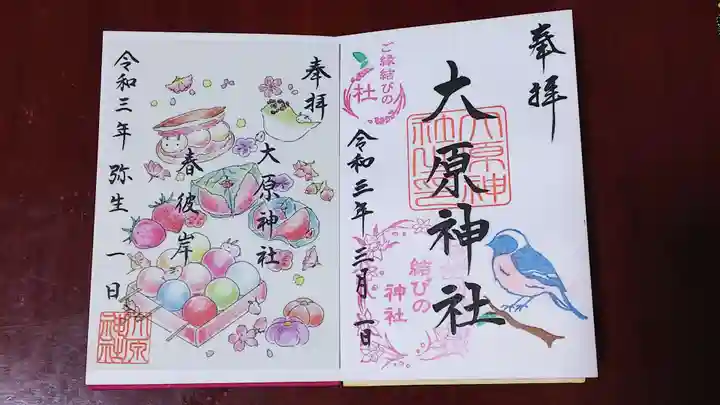 奉拝
大原神社
大原神社
ご縁結びの
社
令和三年三月一日
結びの
神社
奉拝
大原神社
春彼岸
令和三年弥生一日
大原
神社